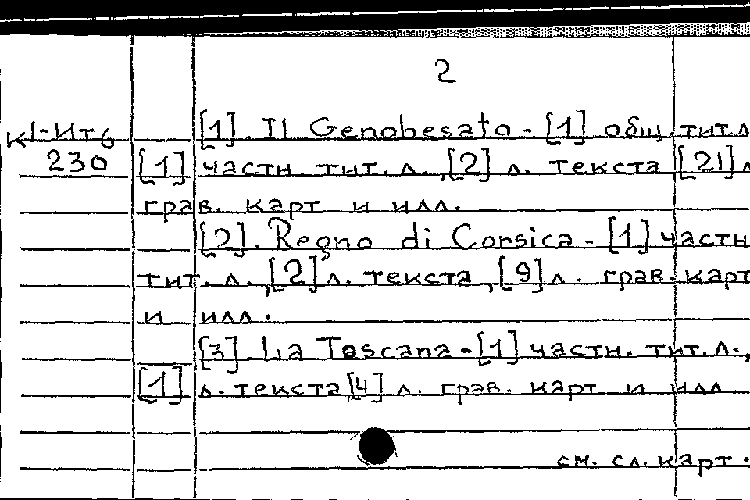 2
К1-Итб [1]. Il Genobesato - [1] общ. тит.л
230 [1] частн. тит. л., [2] л. текста, [21] л
грав. карт и илл.
[2]. Regno di Corsica - [1] частн
тит. л., [2] л. текста, [9] л. грав. карт
и илл.
[3]. La Toscana - [1] частн. тит. л.,
[1] л. текста [4] л. грав. карт и илл
см. сл. карт.